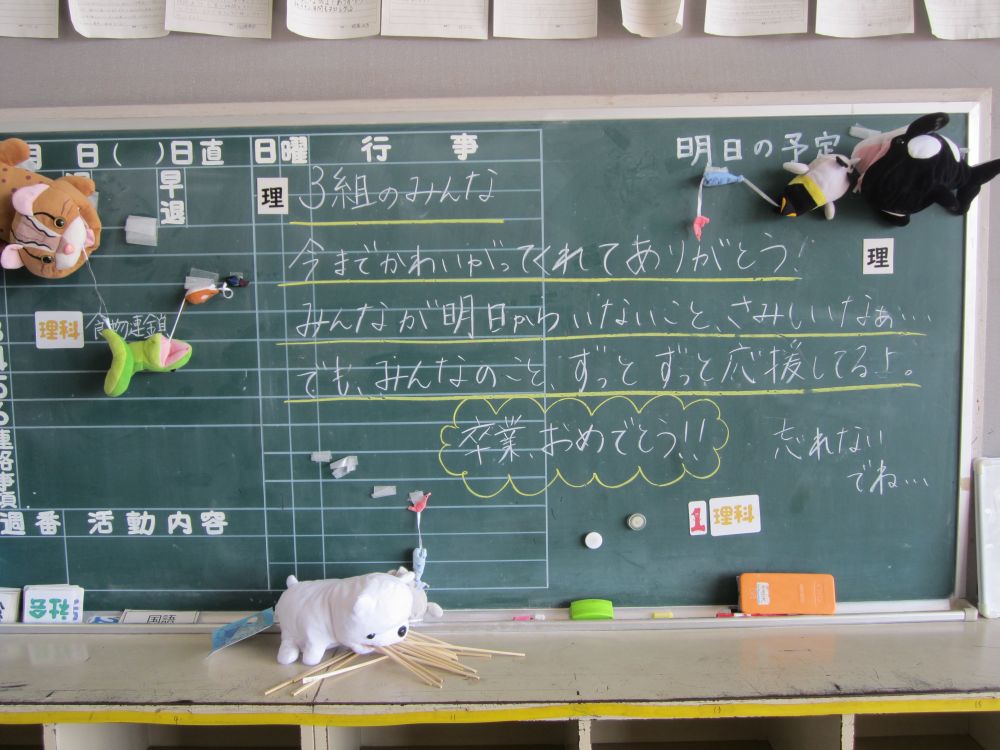 月 日( )日直
日曜
行 事
明日の予定
早退
理
3組のみんな
今までかわいがってくれてありがとう!
理
みんなが明日からいないこと、さみしいなぁ…
理科
食物連鎖
でも、みんなのこと、ずっと ずっと応援してるよ。
卒業、おめでとう!!
忘れない
でね…
連絡事項
1 理科
週番 活動内容
社会
国語